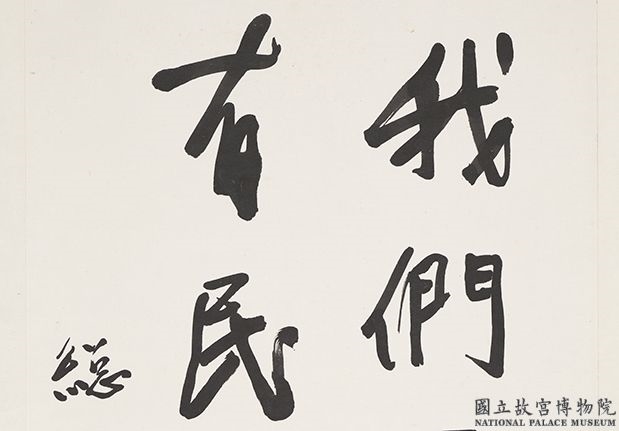 我們
有民
總
國立故宮博物院
NATIONAL PALACE MUSEUM